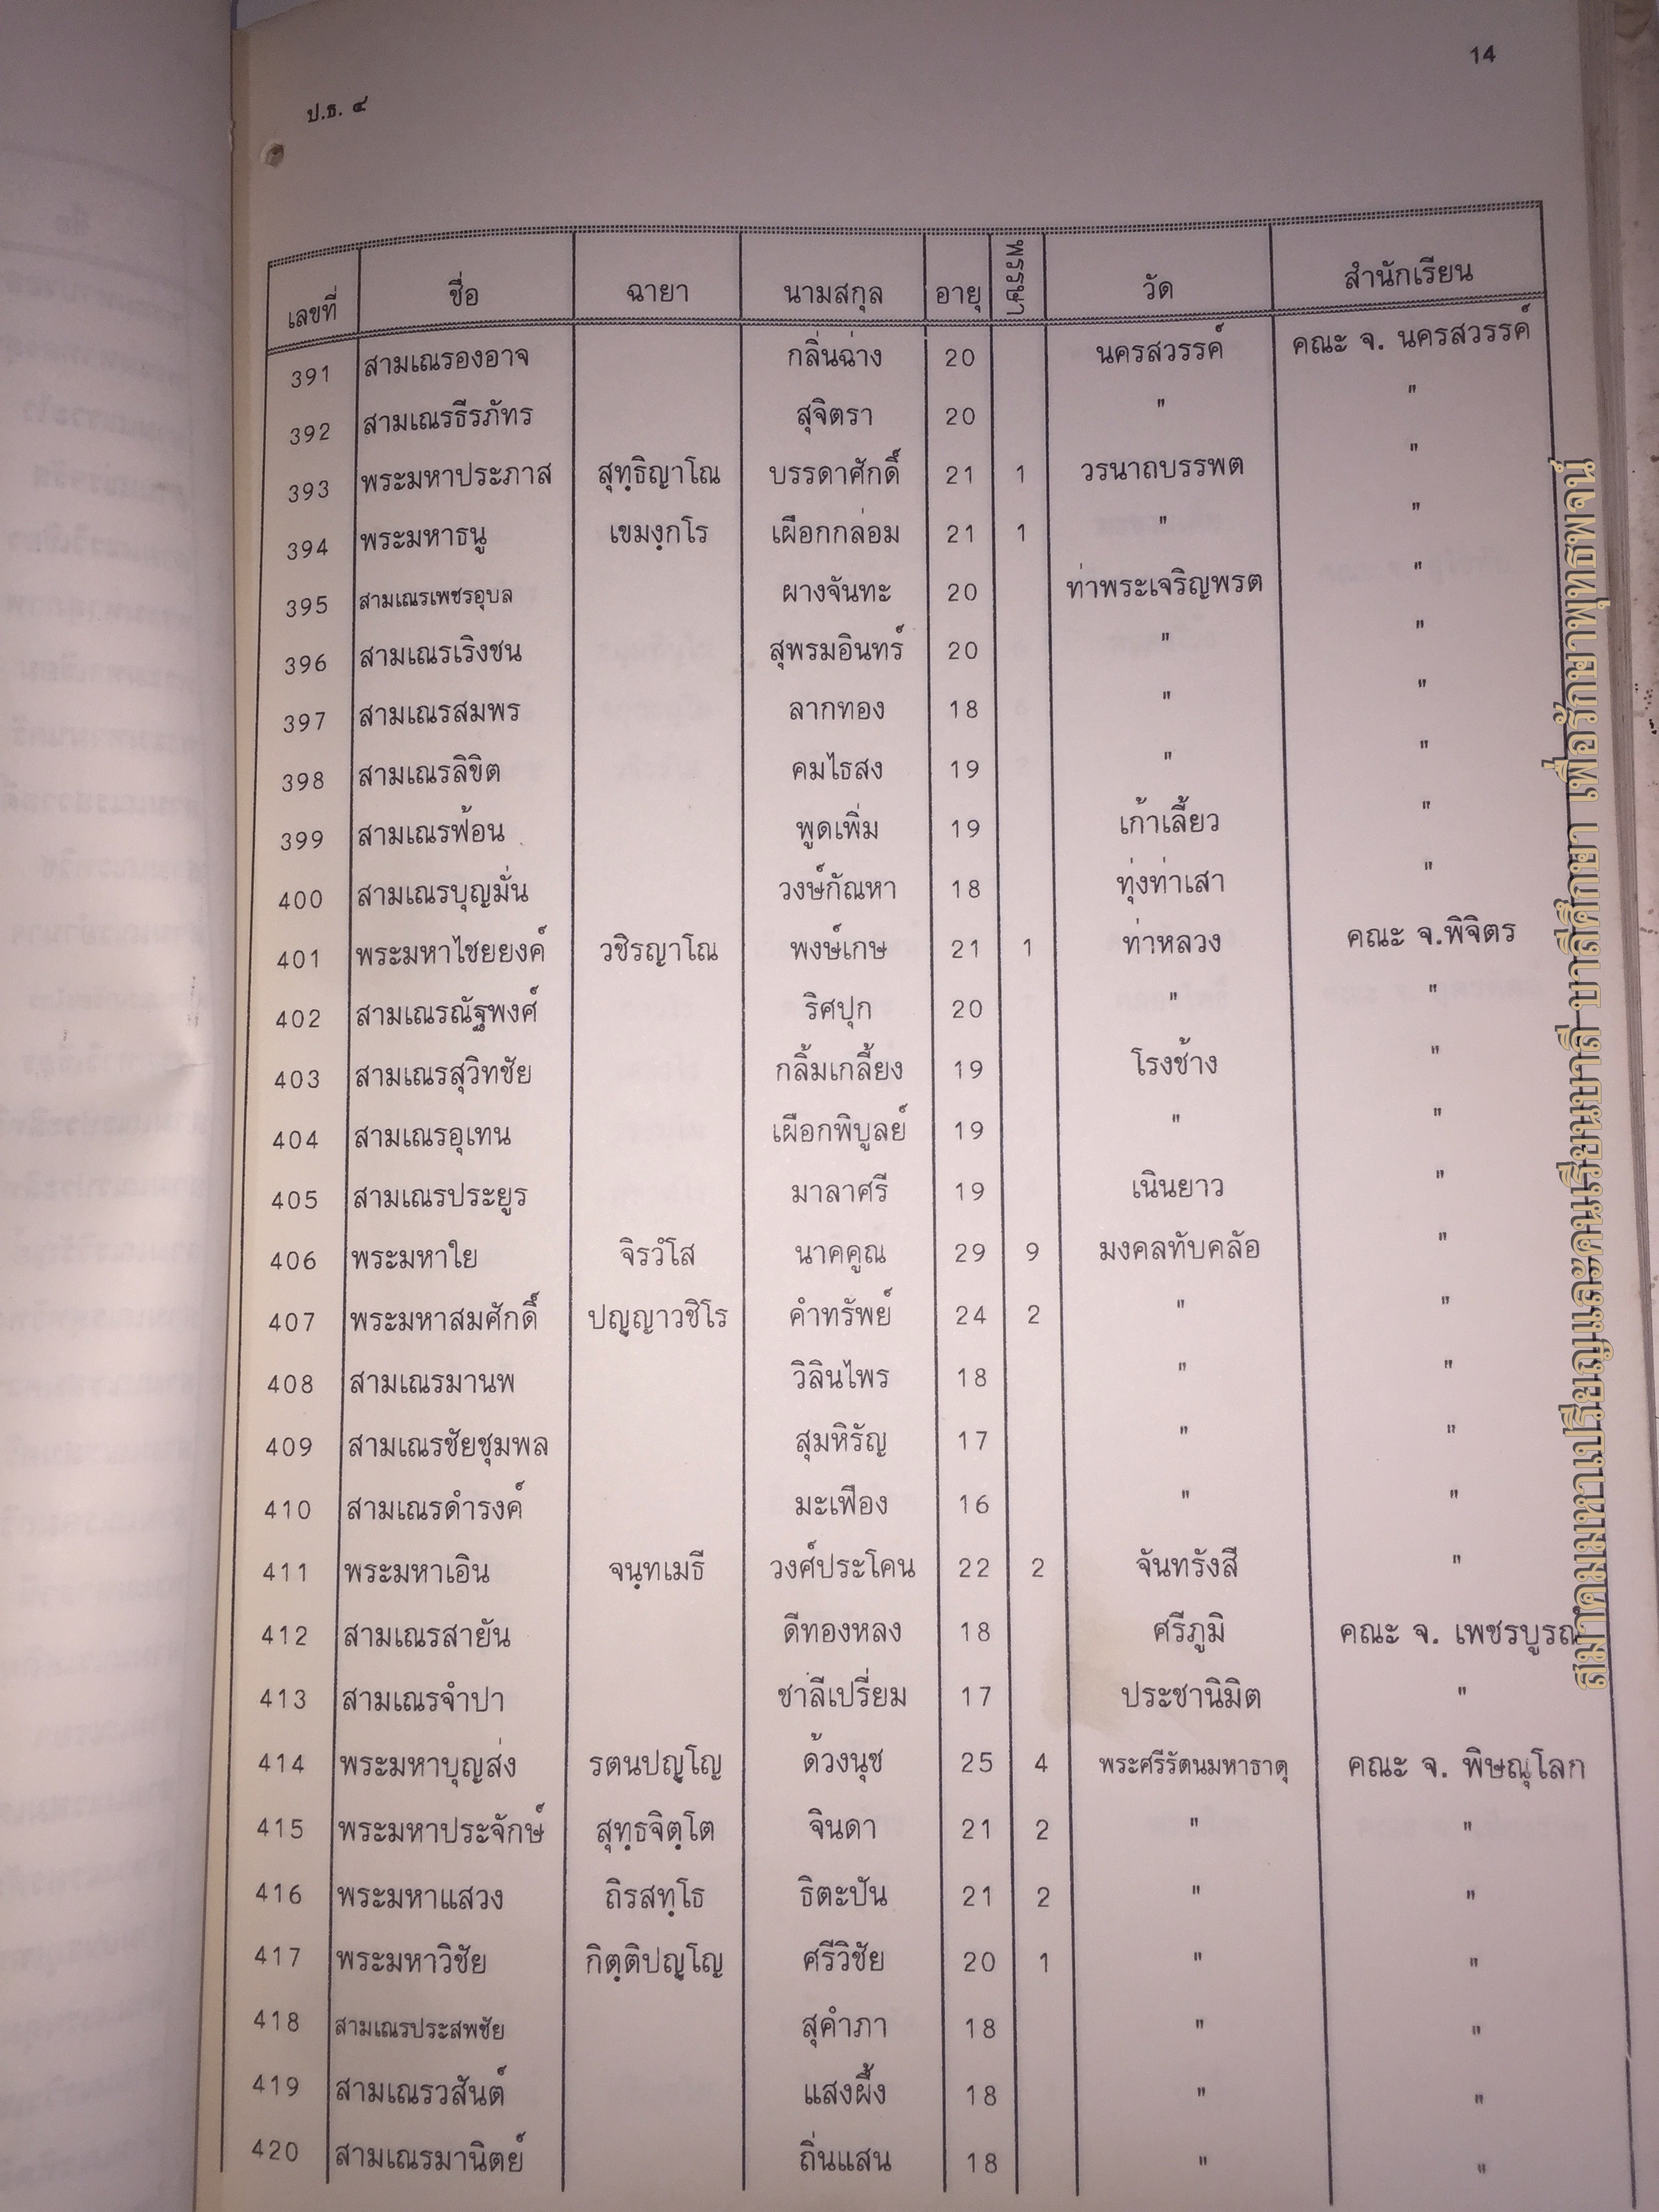 14
ป.ธ. ๔
เลขที่ ชื่อ ฉายา นามสกุล อายุ พรรษา วัด สำนักเรียน
391 สามเณรองอาจ กลิ่นฉ่าง 20 นครสวรรค์ คณะ จ. นครสวรรค์
392 สามเณรธีรภัทร สุจิตรา 20 " "
393 พระมหาประภาส สุทฺธิญาโณ บรรดาศักดิ์ 21 1 วรนาถบรรพต "
394 พระมหาธนู เขมงฺกโร เผือกกล่อม 21 1 " "
395 สามเณรเพชรอุบล ผางจันทะ 20 ท่าพระเจริญพรต "
396 สามเณรเริงชน สุพรมอินทร์ 20 " "
397 สามเณรสมพร ลากทอง 18 " "
398 สามเณรลิขิต คมไธสง 19 " "
399 สามเณรฟ้อน พูดเพิ่ม 19 เก้าเลี้ยว "
400 สามเณรบุญมั่น วงษ์กัณหา 18 ทุ่งท่าเสา "
401 พระมหาไชยยงค์ วชิรญาโณ พงษ์เกษ 21 1 ท่าหลวง คณะ จ.พิจิตร
402 สามเณรณัฐพงศ์ ริศปุก 20 " "
403 สามเณรสุวิทชัย กลิ้มเกลี้ยง 19 โรงช้าง "
404 สามเณรอุเทน เผือกพิบูลย์ 19 " "
405 สามเณรประยูร มาลาศรี 19 เนินยาว "
406 พระมหาใย จิรวํโส นาคคูณ 29 9 มงคลทับคล้อ "
407 พระมหาสมศักดิ์ ปญฺญาวชิโร คำทรัพย์ 24 2 " "
408 สามเณรมานพ วิลินไพร 18 " "
409 สามเณรชัยชุมพล สุมหิรัญ 17 " "
410 สามเณรดำรงค์ มะเฟือง 16 " "
411 พระมหาเอิน จนฺทเมธี วงศ์ประโคน 22 2 จันทรังสี "
412 สามเณรสายัน ดีทองหลง 18 ศรีภูมิ คณะ จ.
413 สามเณรจำปา ชาลีเปรี่ยม 17 ประชานิมิต "
414 พระมหาบุญส่ง รตนปญฺโญ ด้วงนุช 25 4 พระศรีรัตนมหาธาตุ คณะ จ. พิษณุโลก
415 พระมหาประจักษ์ สุทฺธจิตฺโต จินดา 21 2 " "
416 พระมหาแสวง ถิรสทฺโธ ธิตะปัน 21 2 " "
417 พระมหาวิชัย กิตฺติปญฺโญ ศรีวิชัย 20 1 " "
418 สามเณรประสพชัย สุคำภา 18 " "
419 สามเณรวสันต์ แสงผึ้ง 18 " "
420 สามเณรมานิตย์ ถิ่นแสน 18 " "
สมาคมมหาเปรียญและคนเรียนบาลี บาลีศึกษา เพื่อรักษาพุทธพจน์